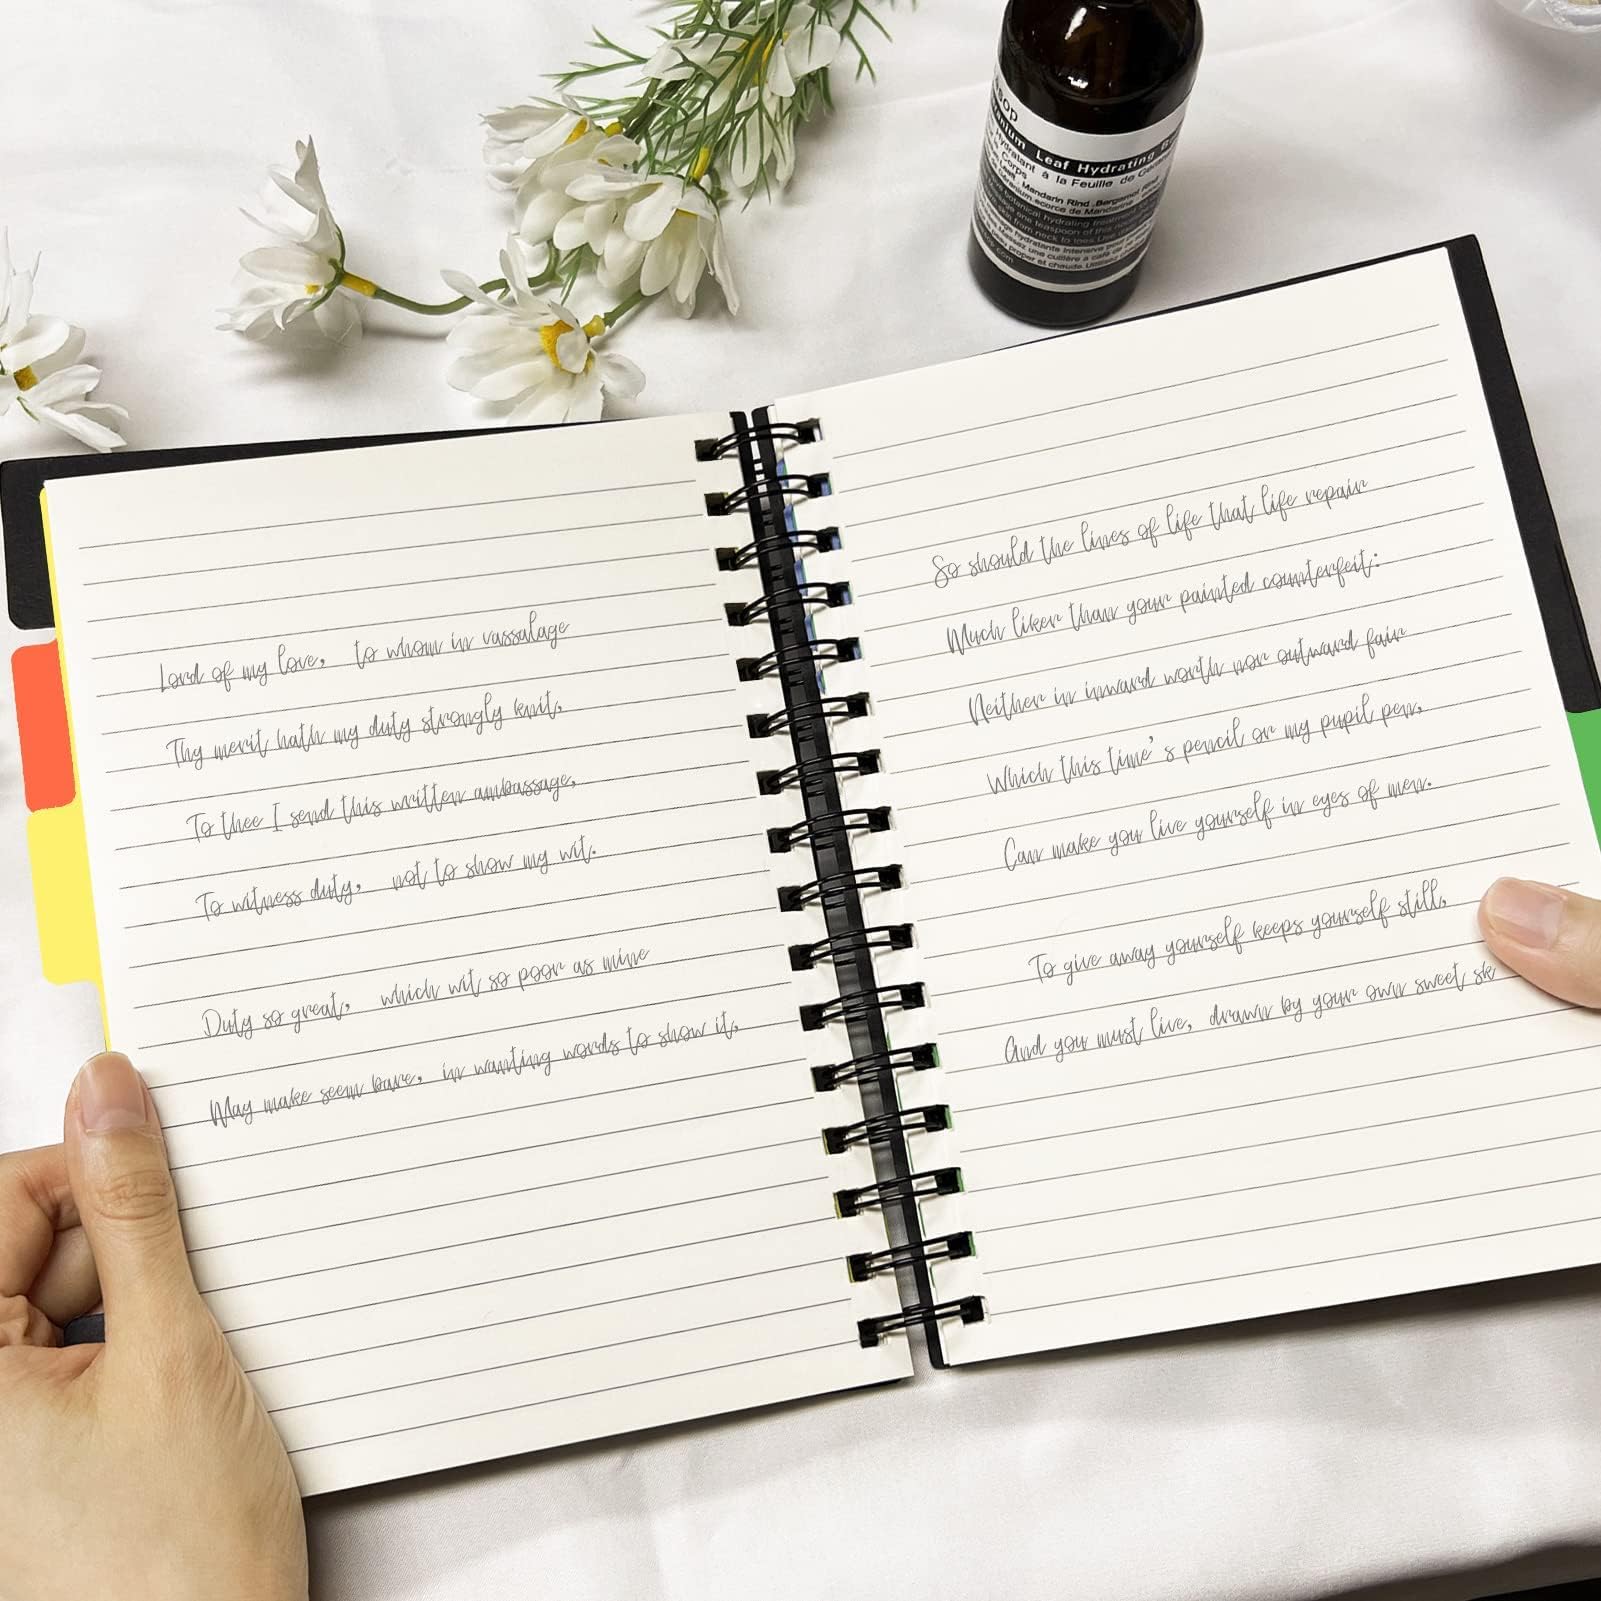 sop
nium Leaf Hydrating B
Hydratant à la Feuille de Gé
Corps
Mandarin Rind, Bergamot Rind
Lord of my love, to whom in vassalage
Thy merit hath my duty strongly knit,
To thee I send this written ambassage,
To witness duty, not to show my wit.
Duty so great, which wit so poor as mine
May make seem bare, in wanting words to show it,
So should the lines of life that life repair
Much liker than your painted counterfeit:
Neither in inward worth nor outward fair
Which this time's pencil or my pupil pen,
Can make you live yourself in eyes of men.
To give away yourself keeps yourself still,
And you must live, drawn by your own sweet sk